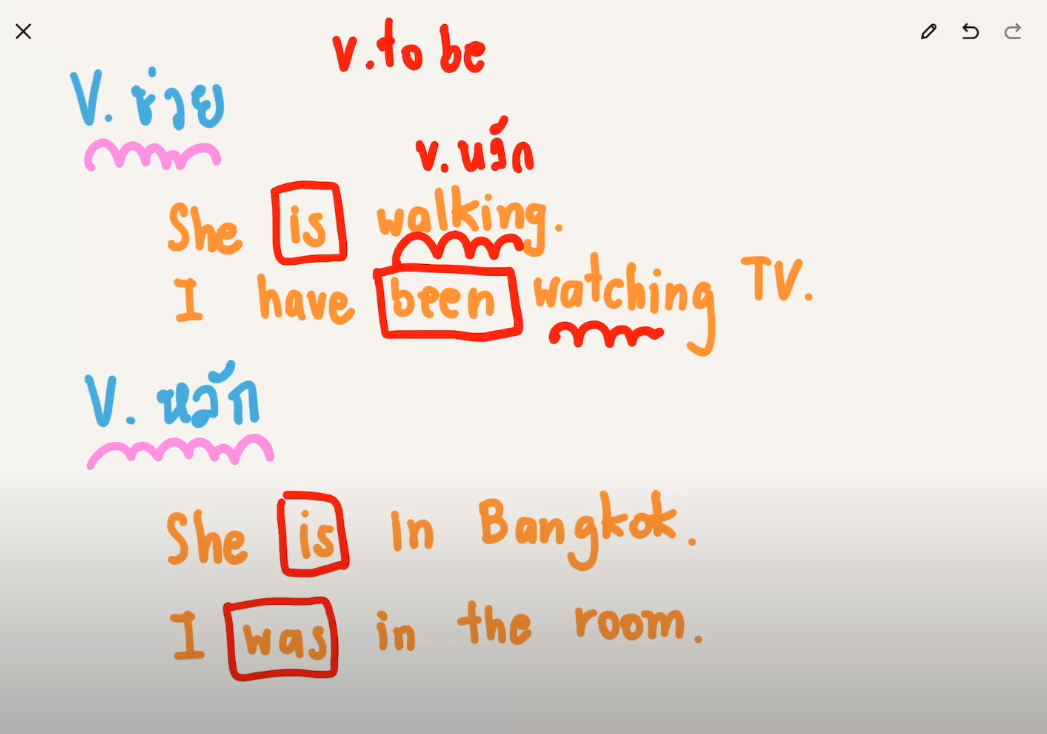 v.to be
V. ช่วย
v.หลัก
She is walking.
I have been watching TV.
V. หลัก
She is in Bangkok.
I was in the room.